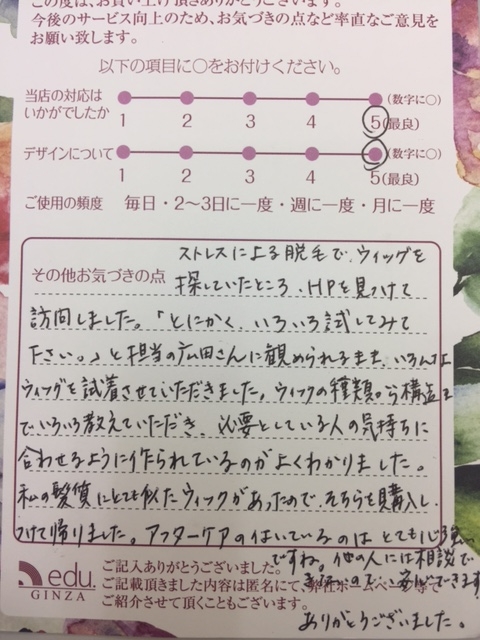 この度は、お買い上げ頂きありがとうございます。
今後のサービス向上のため、お気づきの点など率直なご意見を
お願い致します。
以下の項目に〇をお付けください。
当店の対応は
いかがでしたか
1 2 3 4 5(最良) (数字に〇)
デザインについて
1 2 3 4 5(最良) (数字に〇)
ご使用の頻度 毎日・2〜3日に一度・週に一度・月に一度
その他お気づきの点
ストレスによる脱毛で、ウィッグを
探していたところ、HPを見つけて
訪問しました。「とにかく、いろいろ試してみて
下さい。」と担当の広田さんに勧められるまま、いろんな
ウィッグを試着させていただきました。ウィッグの種類から構造ま
でいろいろ教えていただき、必要としている人の気持ちに
合わせるように作られているのがよくわかりました。
私の髪質にとても似たウィッグがあったので、そちらを購入し
つけて帰りました。アフターケアの付いているのはとても心強い
ですね。他の人には相談で
きないので、安心できます
ありがとうございました。
edu.
GINZA
ご記入ありがとうございました。
ご記載頂きました内容は匿名にて、弊社ホームページ等で
ご紹介させて頂くこともございます。